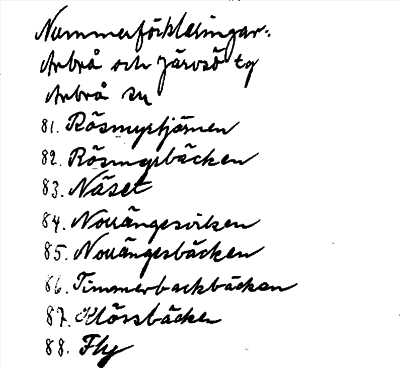 Nummerförklaringar:
Arbrå och Järvsö tg
Arbrå sn
81. Rösmyrtjärnen
82. Rösmyrbäcken
83. Näset
84. Norrängesviken
85. Norrängesbäcken
86. Timmerbackbäcken
87. Klörsbäcken
88. Fly